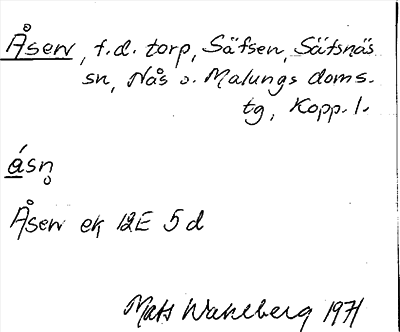 Åsen, f.d. torp, Säfsen, Säfsnäs
sn, Nås o. Malungs doms.
tg, Kopp. l.
åsn̥
Åsen ek 12E 5d
Mats Wahlberg 1971